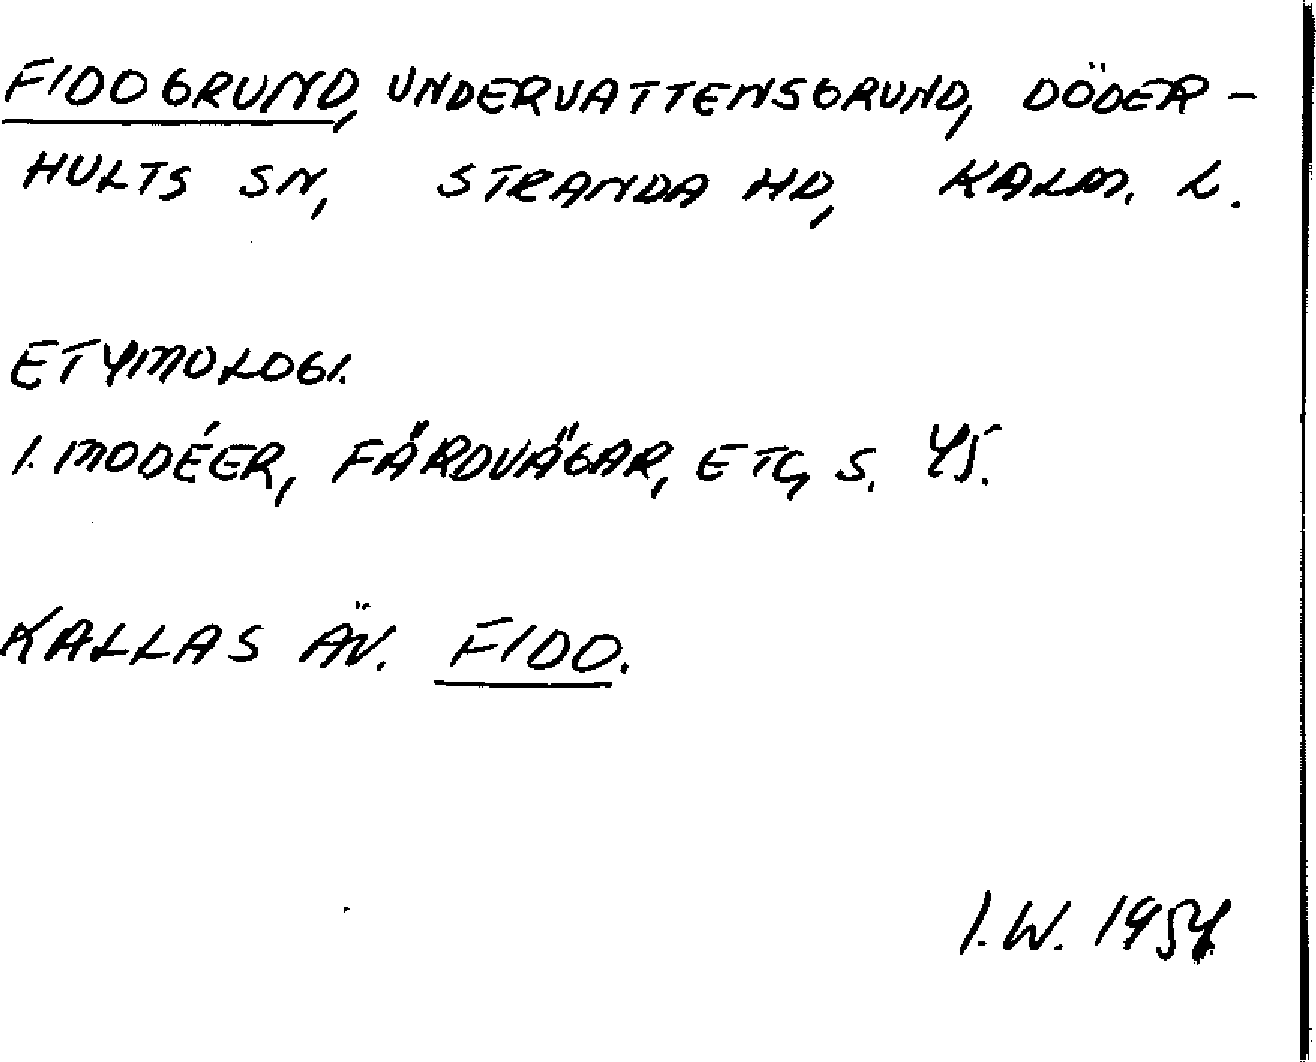 FIDOGRUND, UNDERVATTENSGRUND, DÖDER-
HULTS SN, STRANDA HD, KALM. L.
ETYMOLOGI.
I. MODÉER, FÄRDVÄGAR, ETC, S. 45.
KALLAS ÄV. FIDO.
I.W. 1954